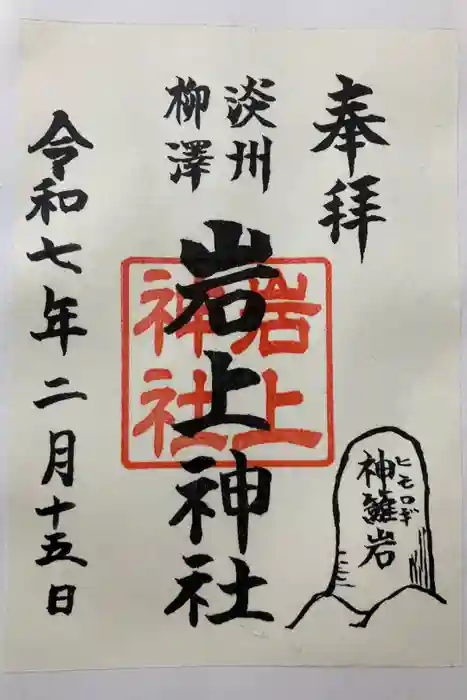 奉拝
淡州
柳澤
岩上神社
岩上
神社
令和七年二月十五日
神籬岩
ヒモロギ